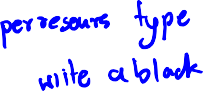 per resours type
write a black